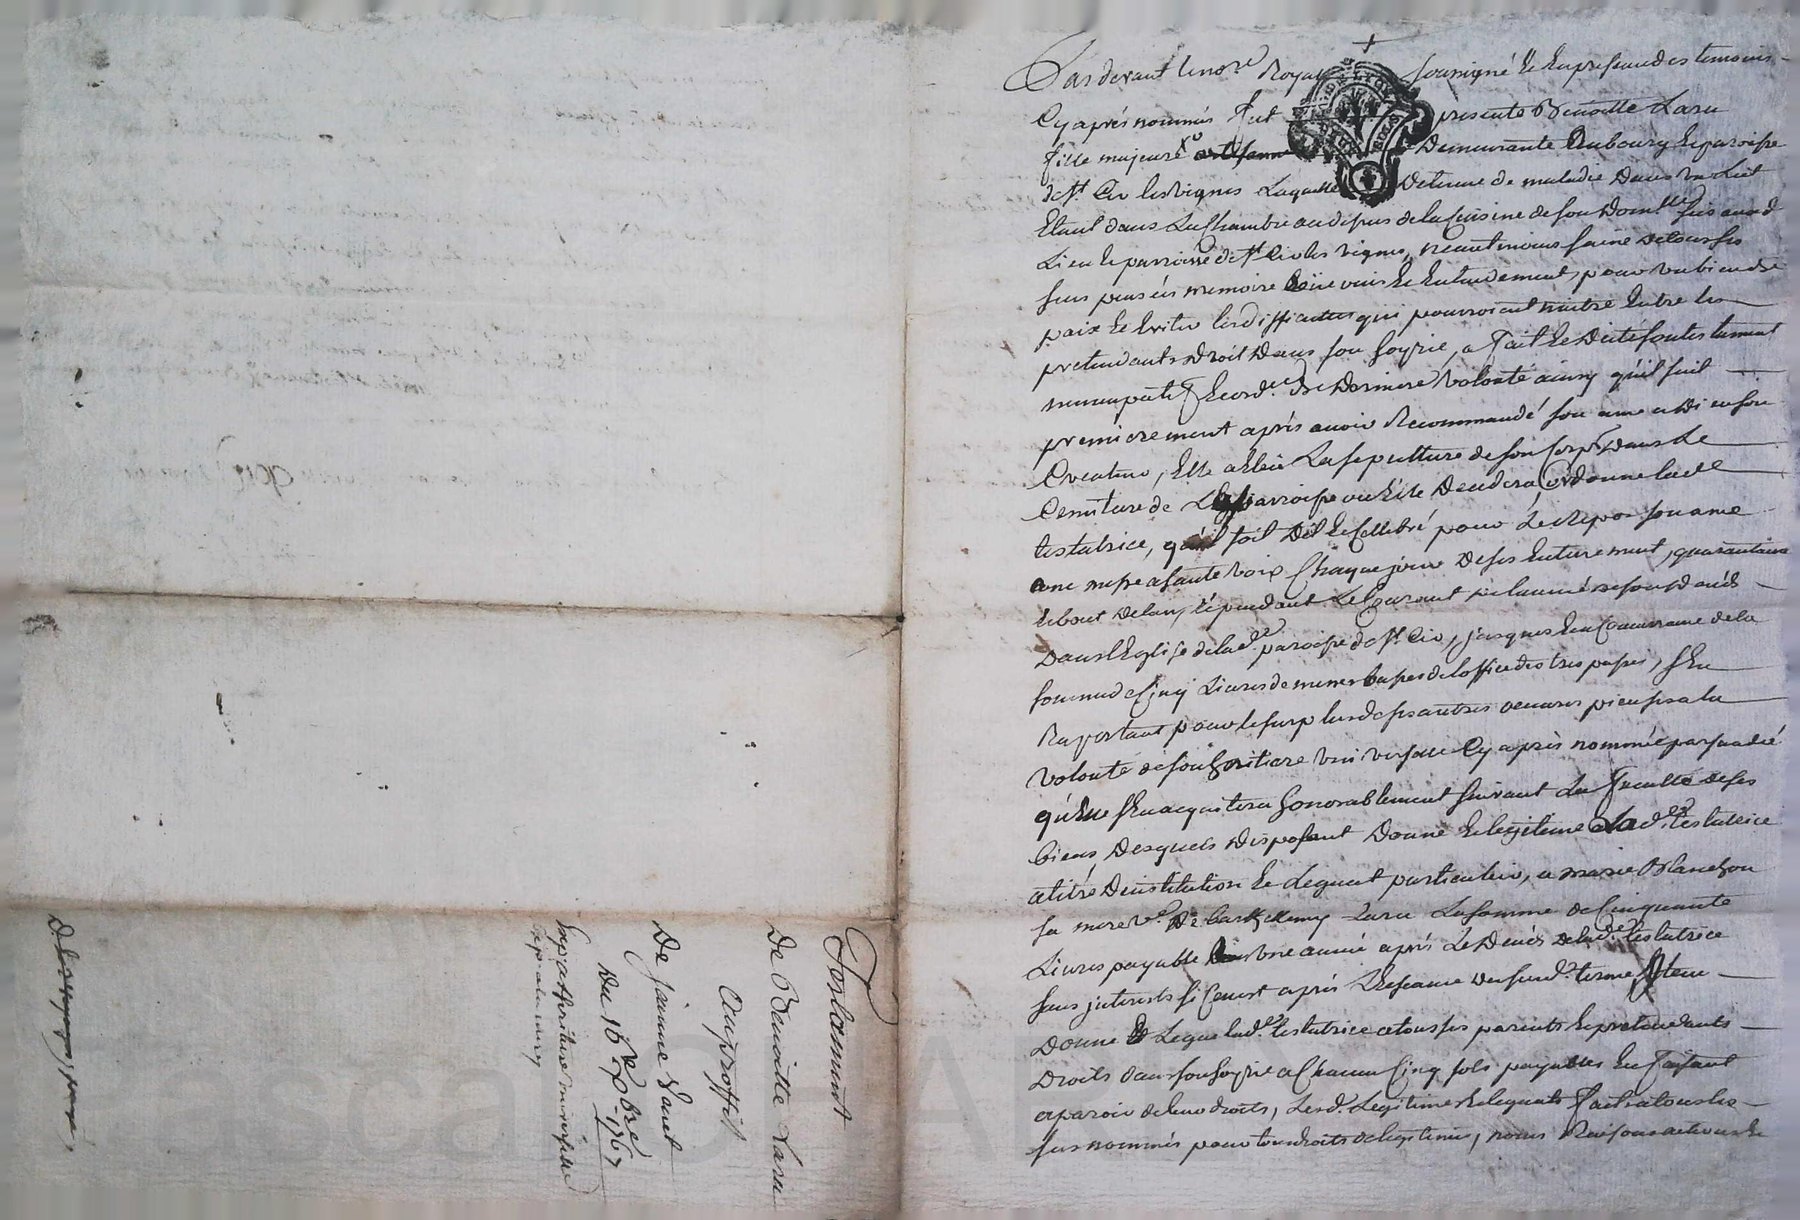 Testament
De Benoitte Laru
Auproffit
De jeanne
Du 16 xbre 1767
Pardevant le nore Royal soussigné Et Enpresance des temoins
Cyaprés nommés fut presente Benoitte Laru
fille majeure Demeurante Aubourg Et paroisse
de st Cir les vignes Laquelle Detenue de maladie Dans un Lict
Etant dans La Chambre audessus de la Cuisine de son Domlle
Lieu Et parroisse de st Cir les vignes, neantmoins saine de tous ses
sens pensées memoire Et Entendement, pour un bien de
paix Et Eviter les difficultes qui pourroient naitre Entre les
pretendants Droit Dans son hoyrie, a fait Et Dicté son testament
nuncupatif Et ordce De Derniere volonté ainsy qu'il suit
premierement aprés avoir Recommandé son ame a Dieu son
Createur, Elle a Eleu La sepulture de son Corps Dans Le
Cemitiere de La parroisse ou Elle Decedera ordonne lade
testatrice, qu'il soit Dit Et Cellebré pour Le Repos son ame
une messe a haute voix Chaque jour de ses Enterrement, quarantaine
Et bout de lan, Et pendant Le Courant de lannée de son Deceds
Dans l'Eglise de lade paroisse de st Cir, jusques Ena Concurrance de la
somme de Cinq Livres de messes basses de l'office des trespassés, s'En
Raportant pour le surplus de ses autres oeuvres pieuses a la
volonté de son heritiere universelle Cy aprés nommée persuadée
qu'elle s'En acquitera honorablement suivant La faculté de ses
biens, Desquels Disposant Donne Et legue Lade testatrice
a titre D'institution Et Leguat particulier, a marie Blanchon
sa mere ve De barthelemy Laru La somme de Cinquante
Livres payable une année aprés Le Deceds de lade testatrice
sans interests si Ce n'est aprés L'Echeance dususd. terme, Item
Donne Et Legue lade testatrice a tous ses parents Et pretendants
Droits dans son hoyrie a Chacun Cinq sols payables En faisant
aparoir de leur droits, Lesd. Legitimes Et leguats faits a tous les
sus nommés pour tous droits de legitimes, noms Raisons actions Et